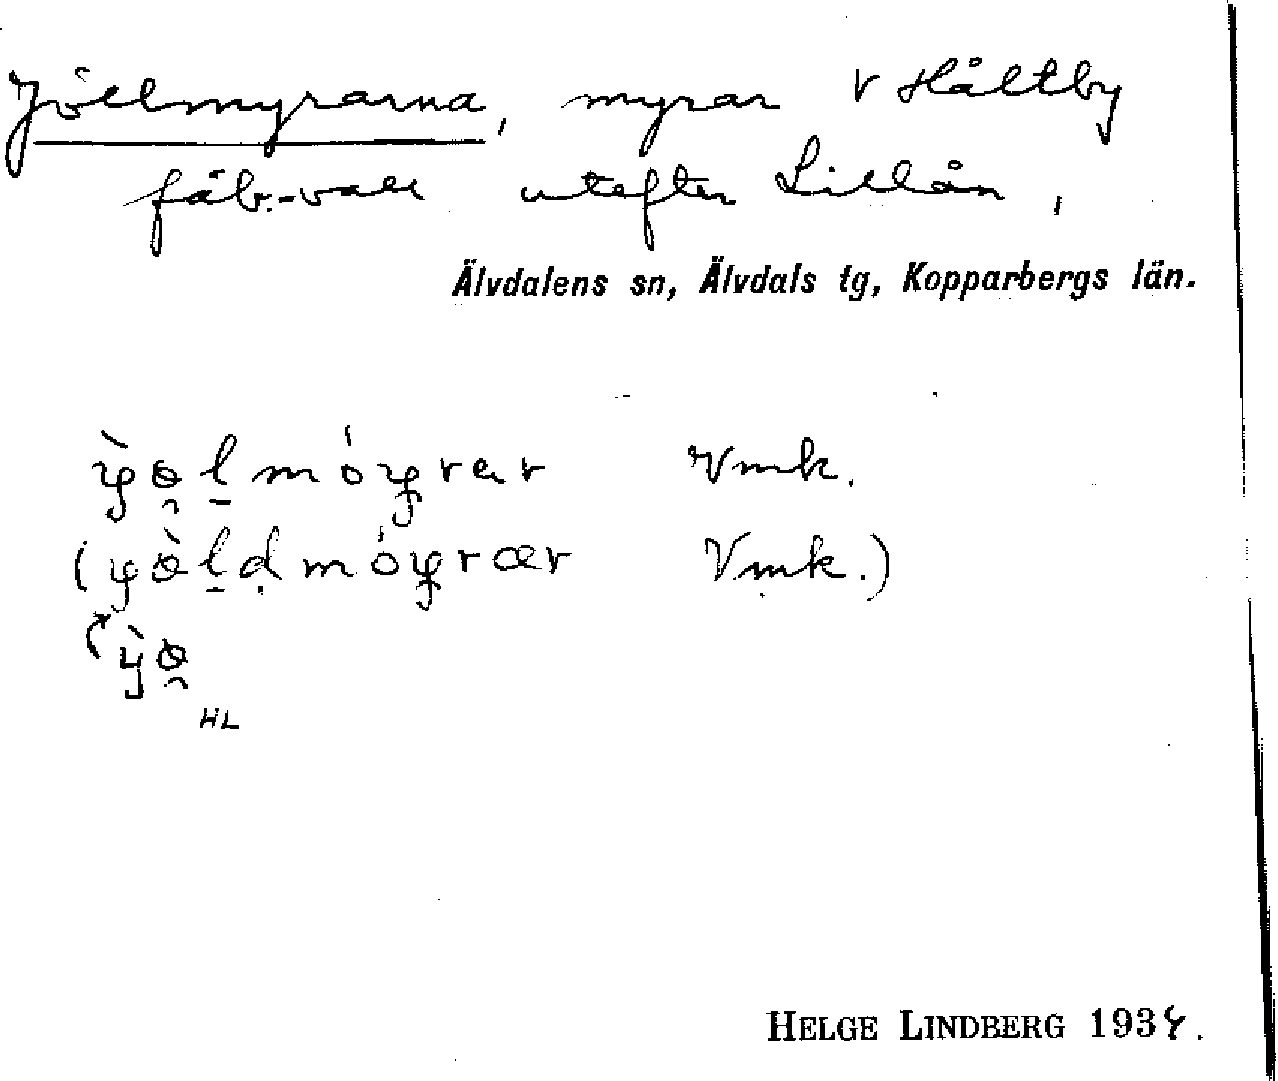 Jöllmyrarna, myrar V Håltby
fäb.-vall utefter Lillån,
Älvdalens sn, Älvdals tg, Kopparbergs län.
Vmk.
Vmk.)
HL
HELGE LINDBERG 1934.